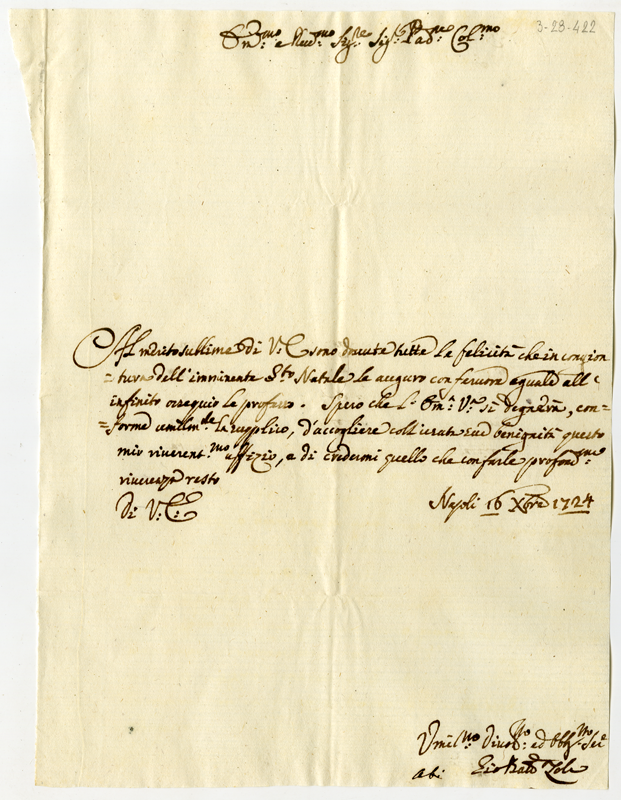 3-23-422
Em:mo e Rev:mo Sig:re Sig:re Pad:ne Col:mo
Al merito sublime di V: E: sono dovute tutte le felicità che in congion
=tura dell'imminente Sto Natale le auguro con fervore eguale all'
infinito ossequio le professo. Spero che l' Em:a V:ra si degnerà, con-
=forme umilm:te la supplico, d'accogliere coll'usata sua benignità questo
mio riverent:mo uffizio, e di credermi quello che con farle profond:ma
riverenza resto
Di V: E:
Napoli 16 Xbre 1724
Umil:mo Divot:mo ed Obblig:mo Ser